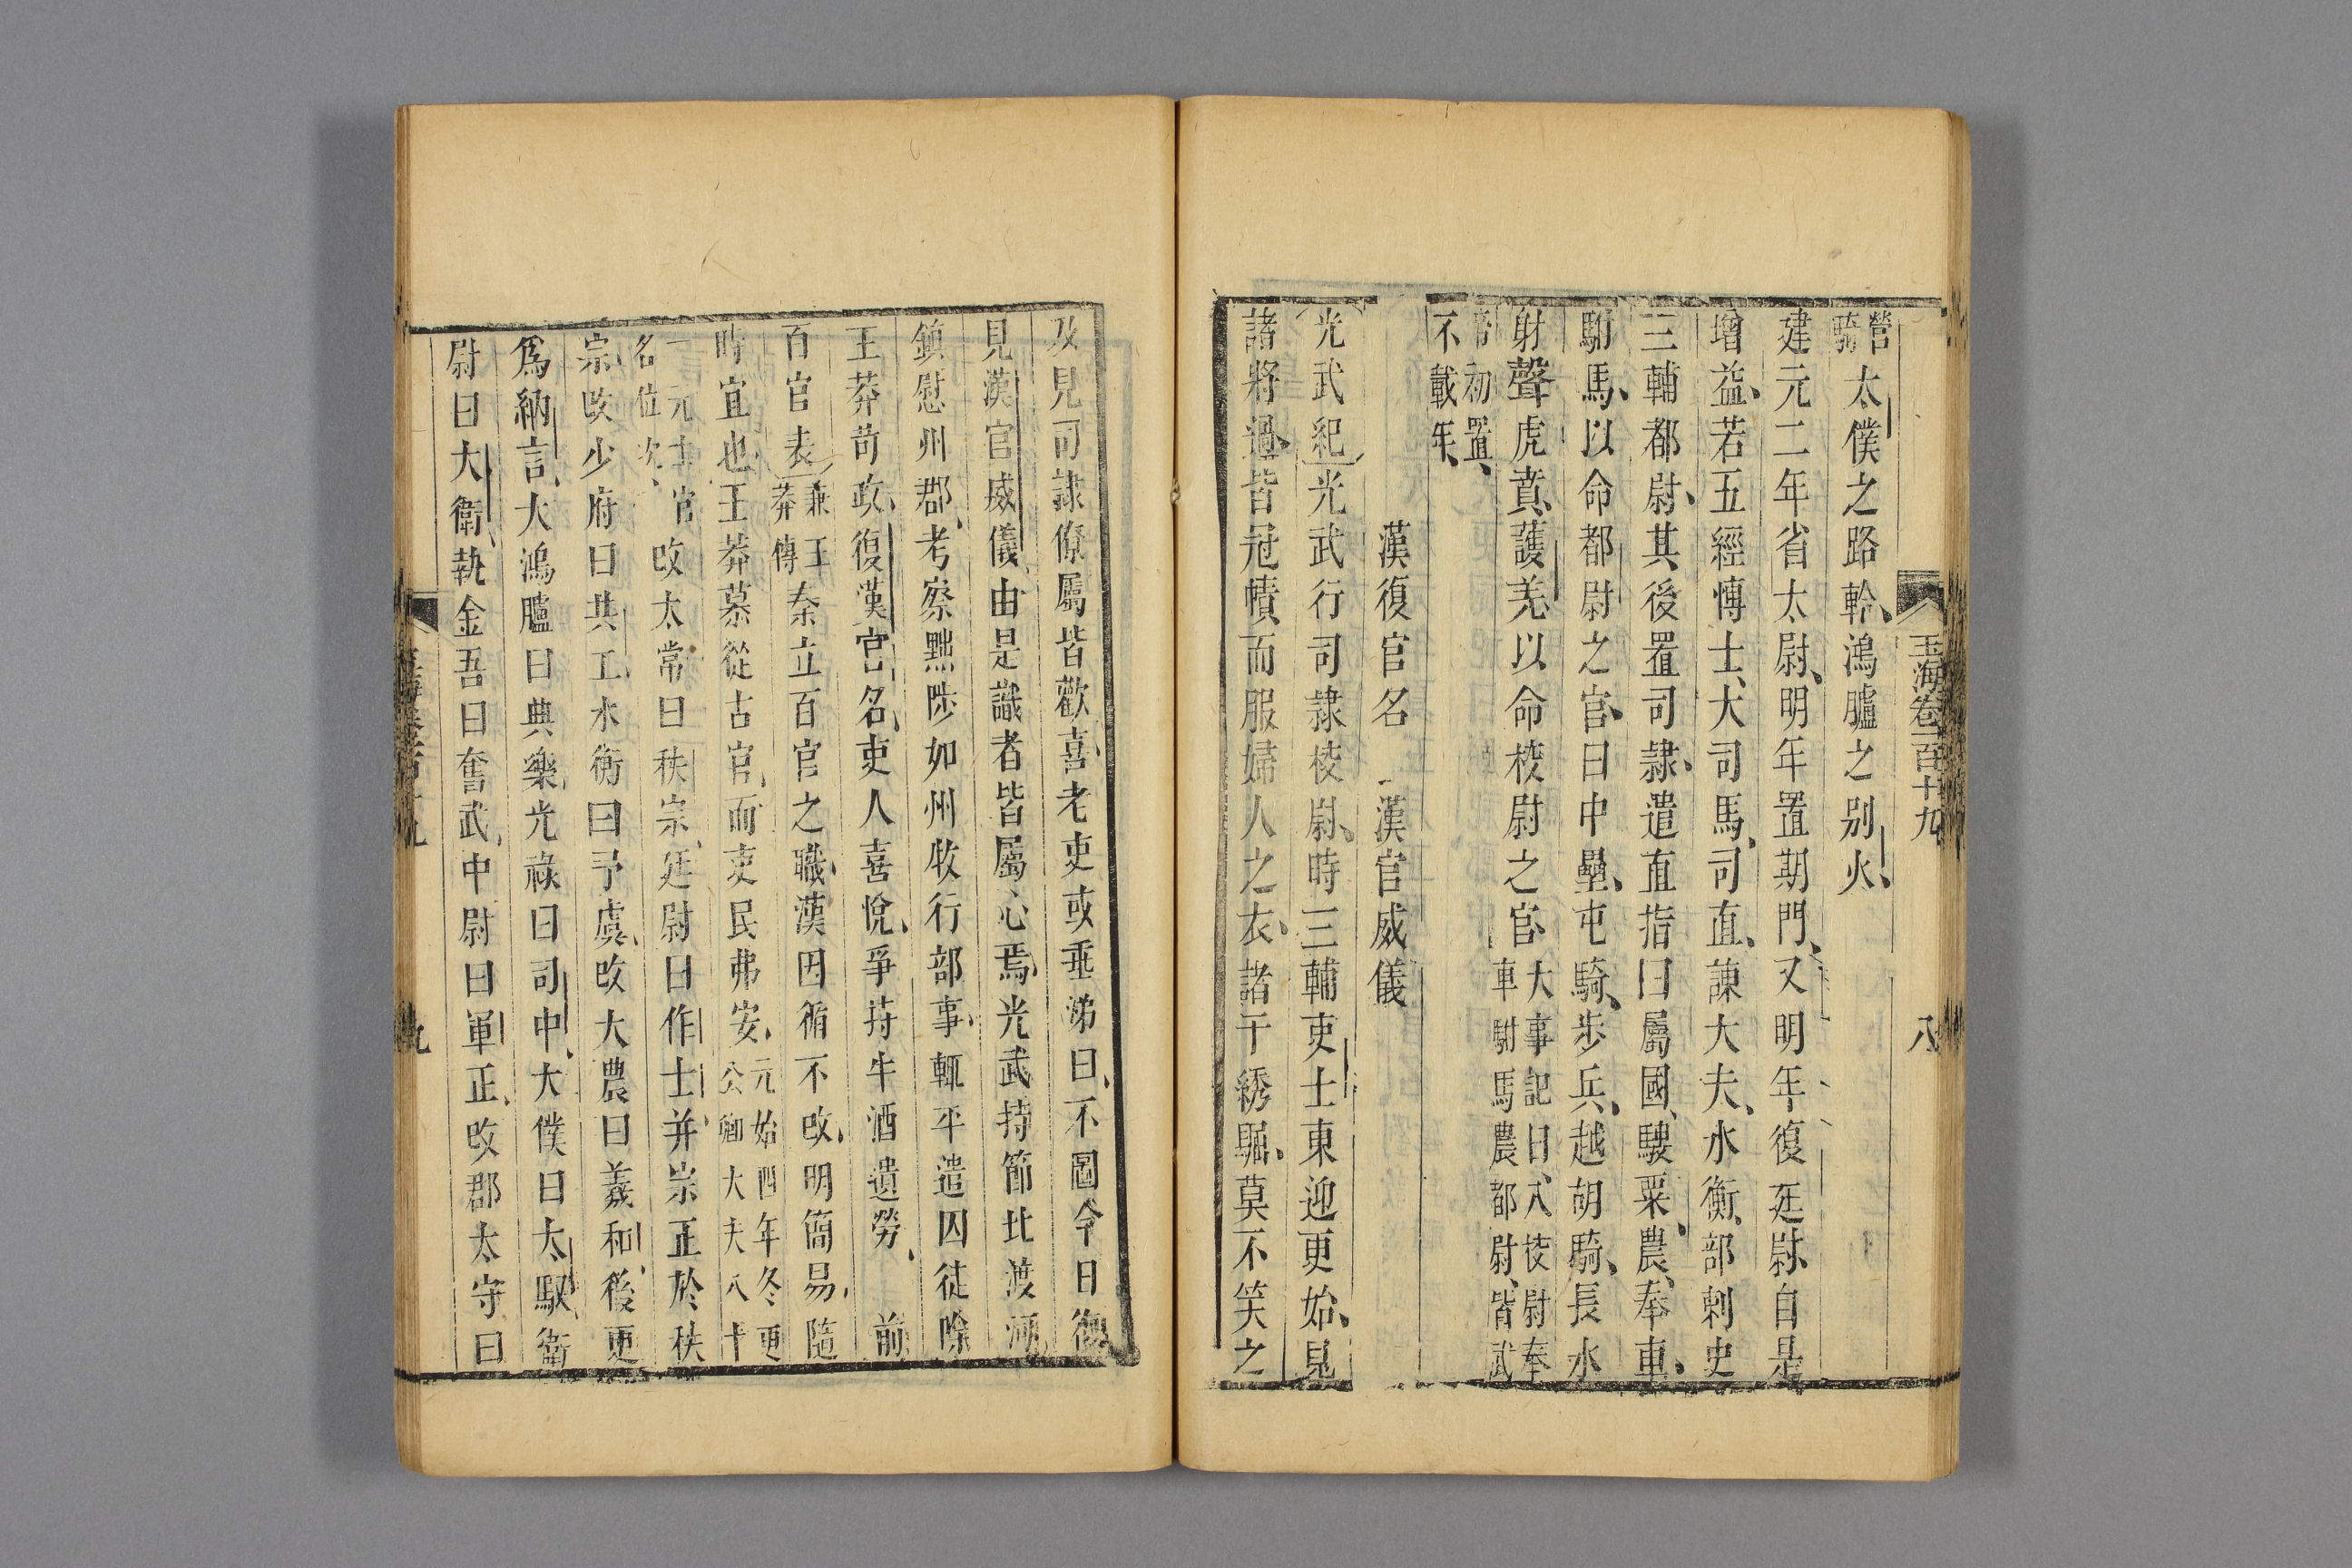 玉海卷一百十九
八
營騎太僕之路軨鴻臚之别火
建元二年省太尉明年置期門又明年復廷尉自是
增益若五經博士大司馬司直諫大夫水衡部刺史
三輔都尉其後置司隷遣直指曰屬國騪粟農奉車
駙馬以命都尉之官曰中壘屯騎歩兵越胡騎長水
射聲虎賁護羗以命校尉之官大事記曰八校尉奉車駙馬農都尉皆武
帝初置不載年
漢復官名 漢官威儀
光武紀光武行司隷校尉時三輔吏士東迎更始見
諸將過皆冠幘而服婦人之衣諸于綉䘿莫不笑之
及見司隷僚屬皆歡喜老吏或垂涕曰不圖今日復
見漢官威儀由是識者皆屬心焉光武持節北渡河
鎮慰州郡考察黜陟如州牧行部事輒平遣囚徒除
王莽苛政復漢官名吏人喜悅爭持牛酒遺勞 前
百官表兼王莽傳秦立百官之職漢因循不改明簡易隨
時宜也王莽慕從古官而吏民弗安元始四年冬更公卿大夫八十
一元士官名位次改太常曰秩宗廷尉曰作士并宗正於秩
宗改少府曰共工水衡曰予虞改大農曰羲和後更
爲納言大鴻臚曰典樂光祿曰司中大僕曰太馭衛
尉曰大衛執金吾曰奮武中尉曰軍正改郡太守曰
九